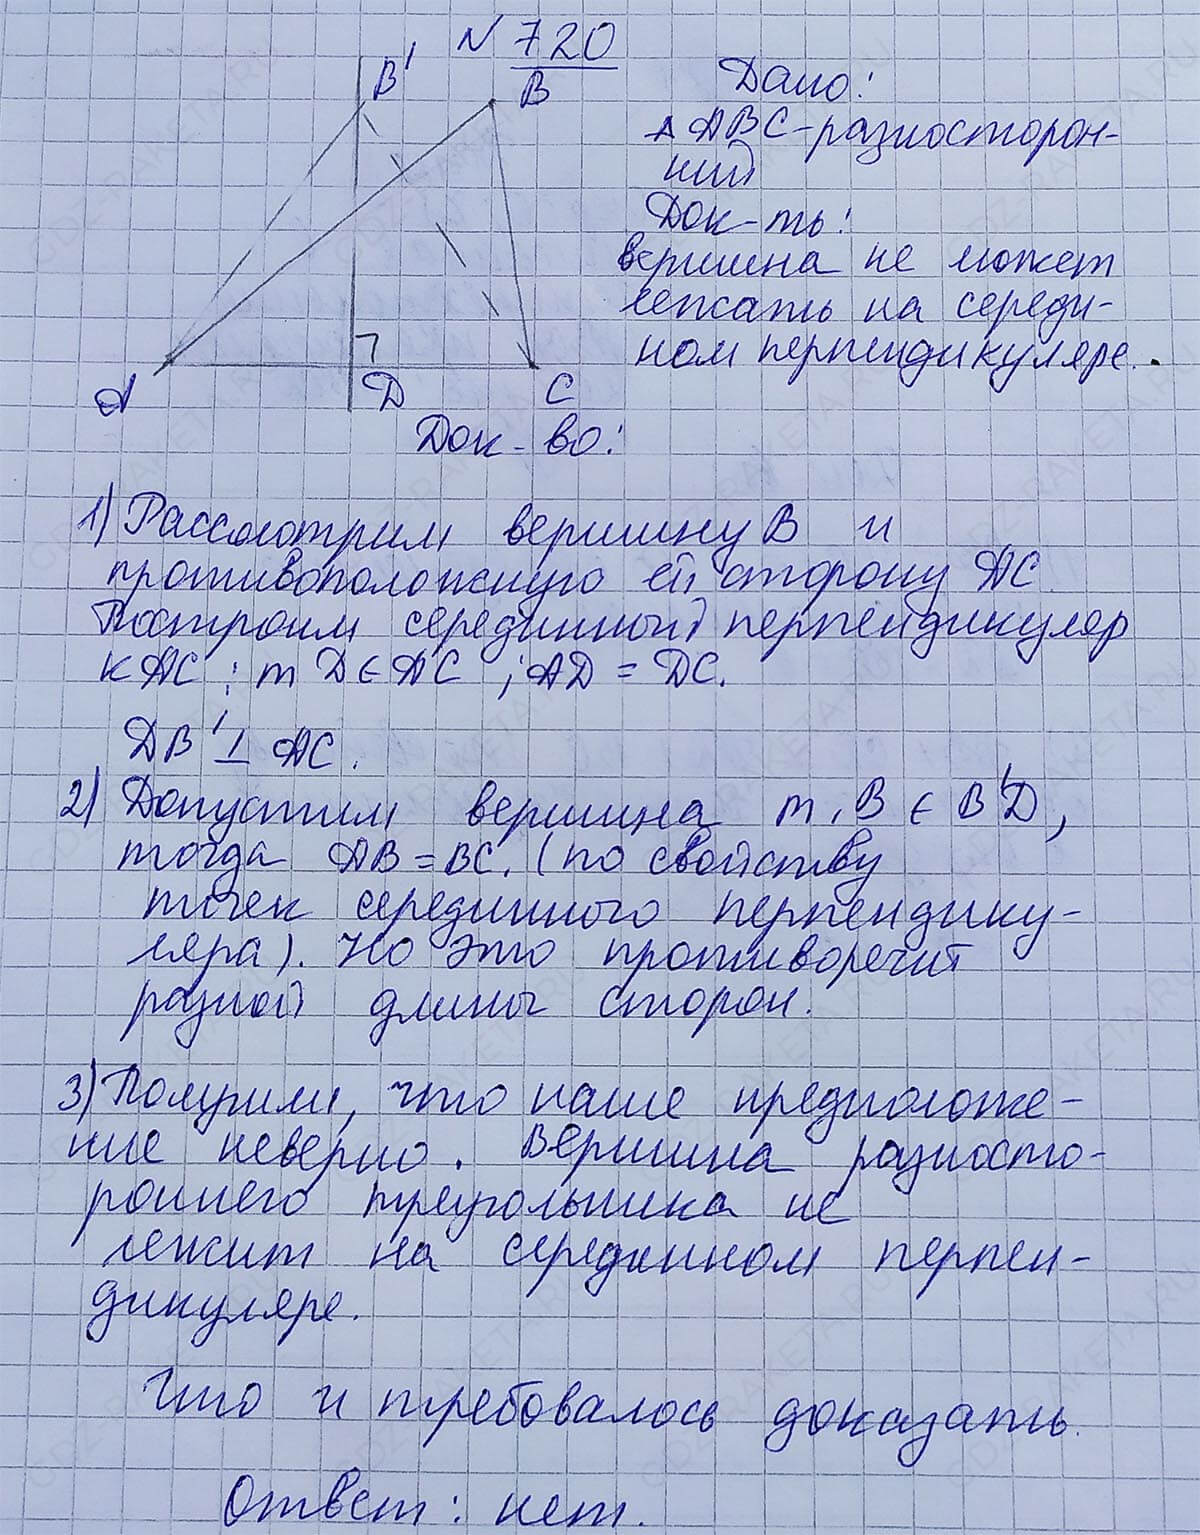 N 720
B'
B
Дано:
Δ ABC-разносторон-
ний
Док-ть:
вершина не может
лежать на середи-
ном перпендикуляре.
A
D
C
Док-во:
1) Рассмотрим вершину B и
противоположную ей сторону AC
Построим серединный перпендикуляр
к AC : т D ∈ AC ; AD = DC.
DB' ⊥ AC.
2) Допустим вершина т. B ∈ B'D,
тогда AB = BC. (по свойству
точек серединного перпендику-
ляра). Но это противоречит
разной длины сторон.
3) Получили, что наше предположе-
ние неверно. Вершина разносто-
роннего треугольника не
лежит на серединном перпен-
дикуляре.
Что и требовалось доказать.
Ответ: нет.